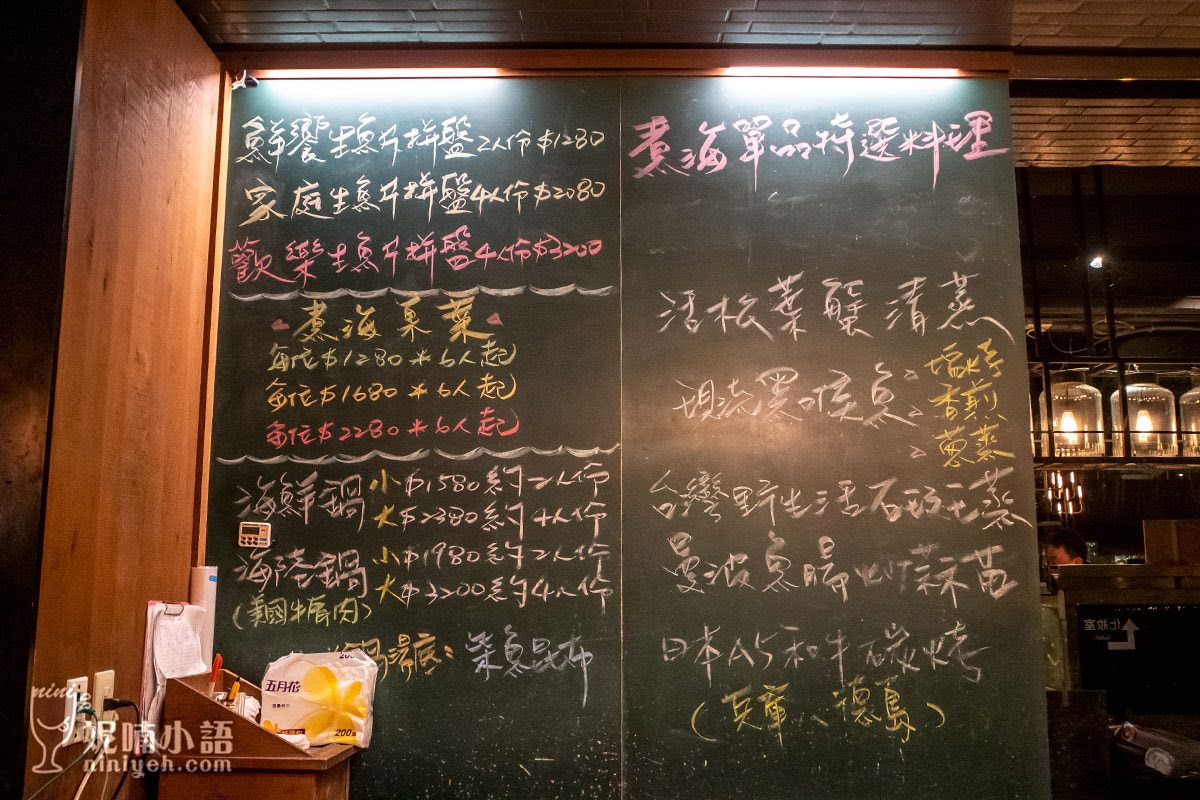 鮮饗生魚片拼盤2人份$1280
家庭生魚片拼盤4人份$2080
歡樂生魚片拼盤4人份$3200
煮海桌菜
每位$1280*6人起
每位$1680*6人起
每位$2280*6人起
海鮮鍋 小$1580約2人份
大$2380約4人份
海陸鍋 小$1980約2人份
大$3200約4人份
(美國牛肩肉)
鍋湯底: 柴魚昆布
煮海單品特選料理
活松葉蟹清蒸
現流黑喉魚 > 塩烤
> 香煎
> 蔥蒸
台灣野生活石斑 清蒸
曼波魚腸炒蒜苗
日本A5和牛碳烤
(兵庫、德島)
五月花
200
化妝室
Toilet
nini
妮喃小語
niniyeh.com